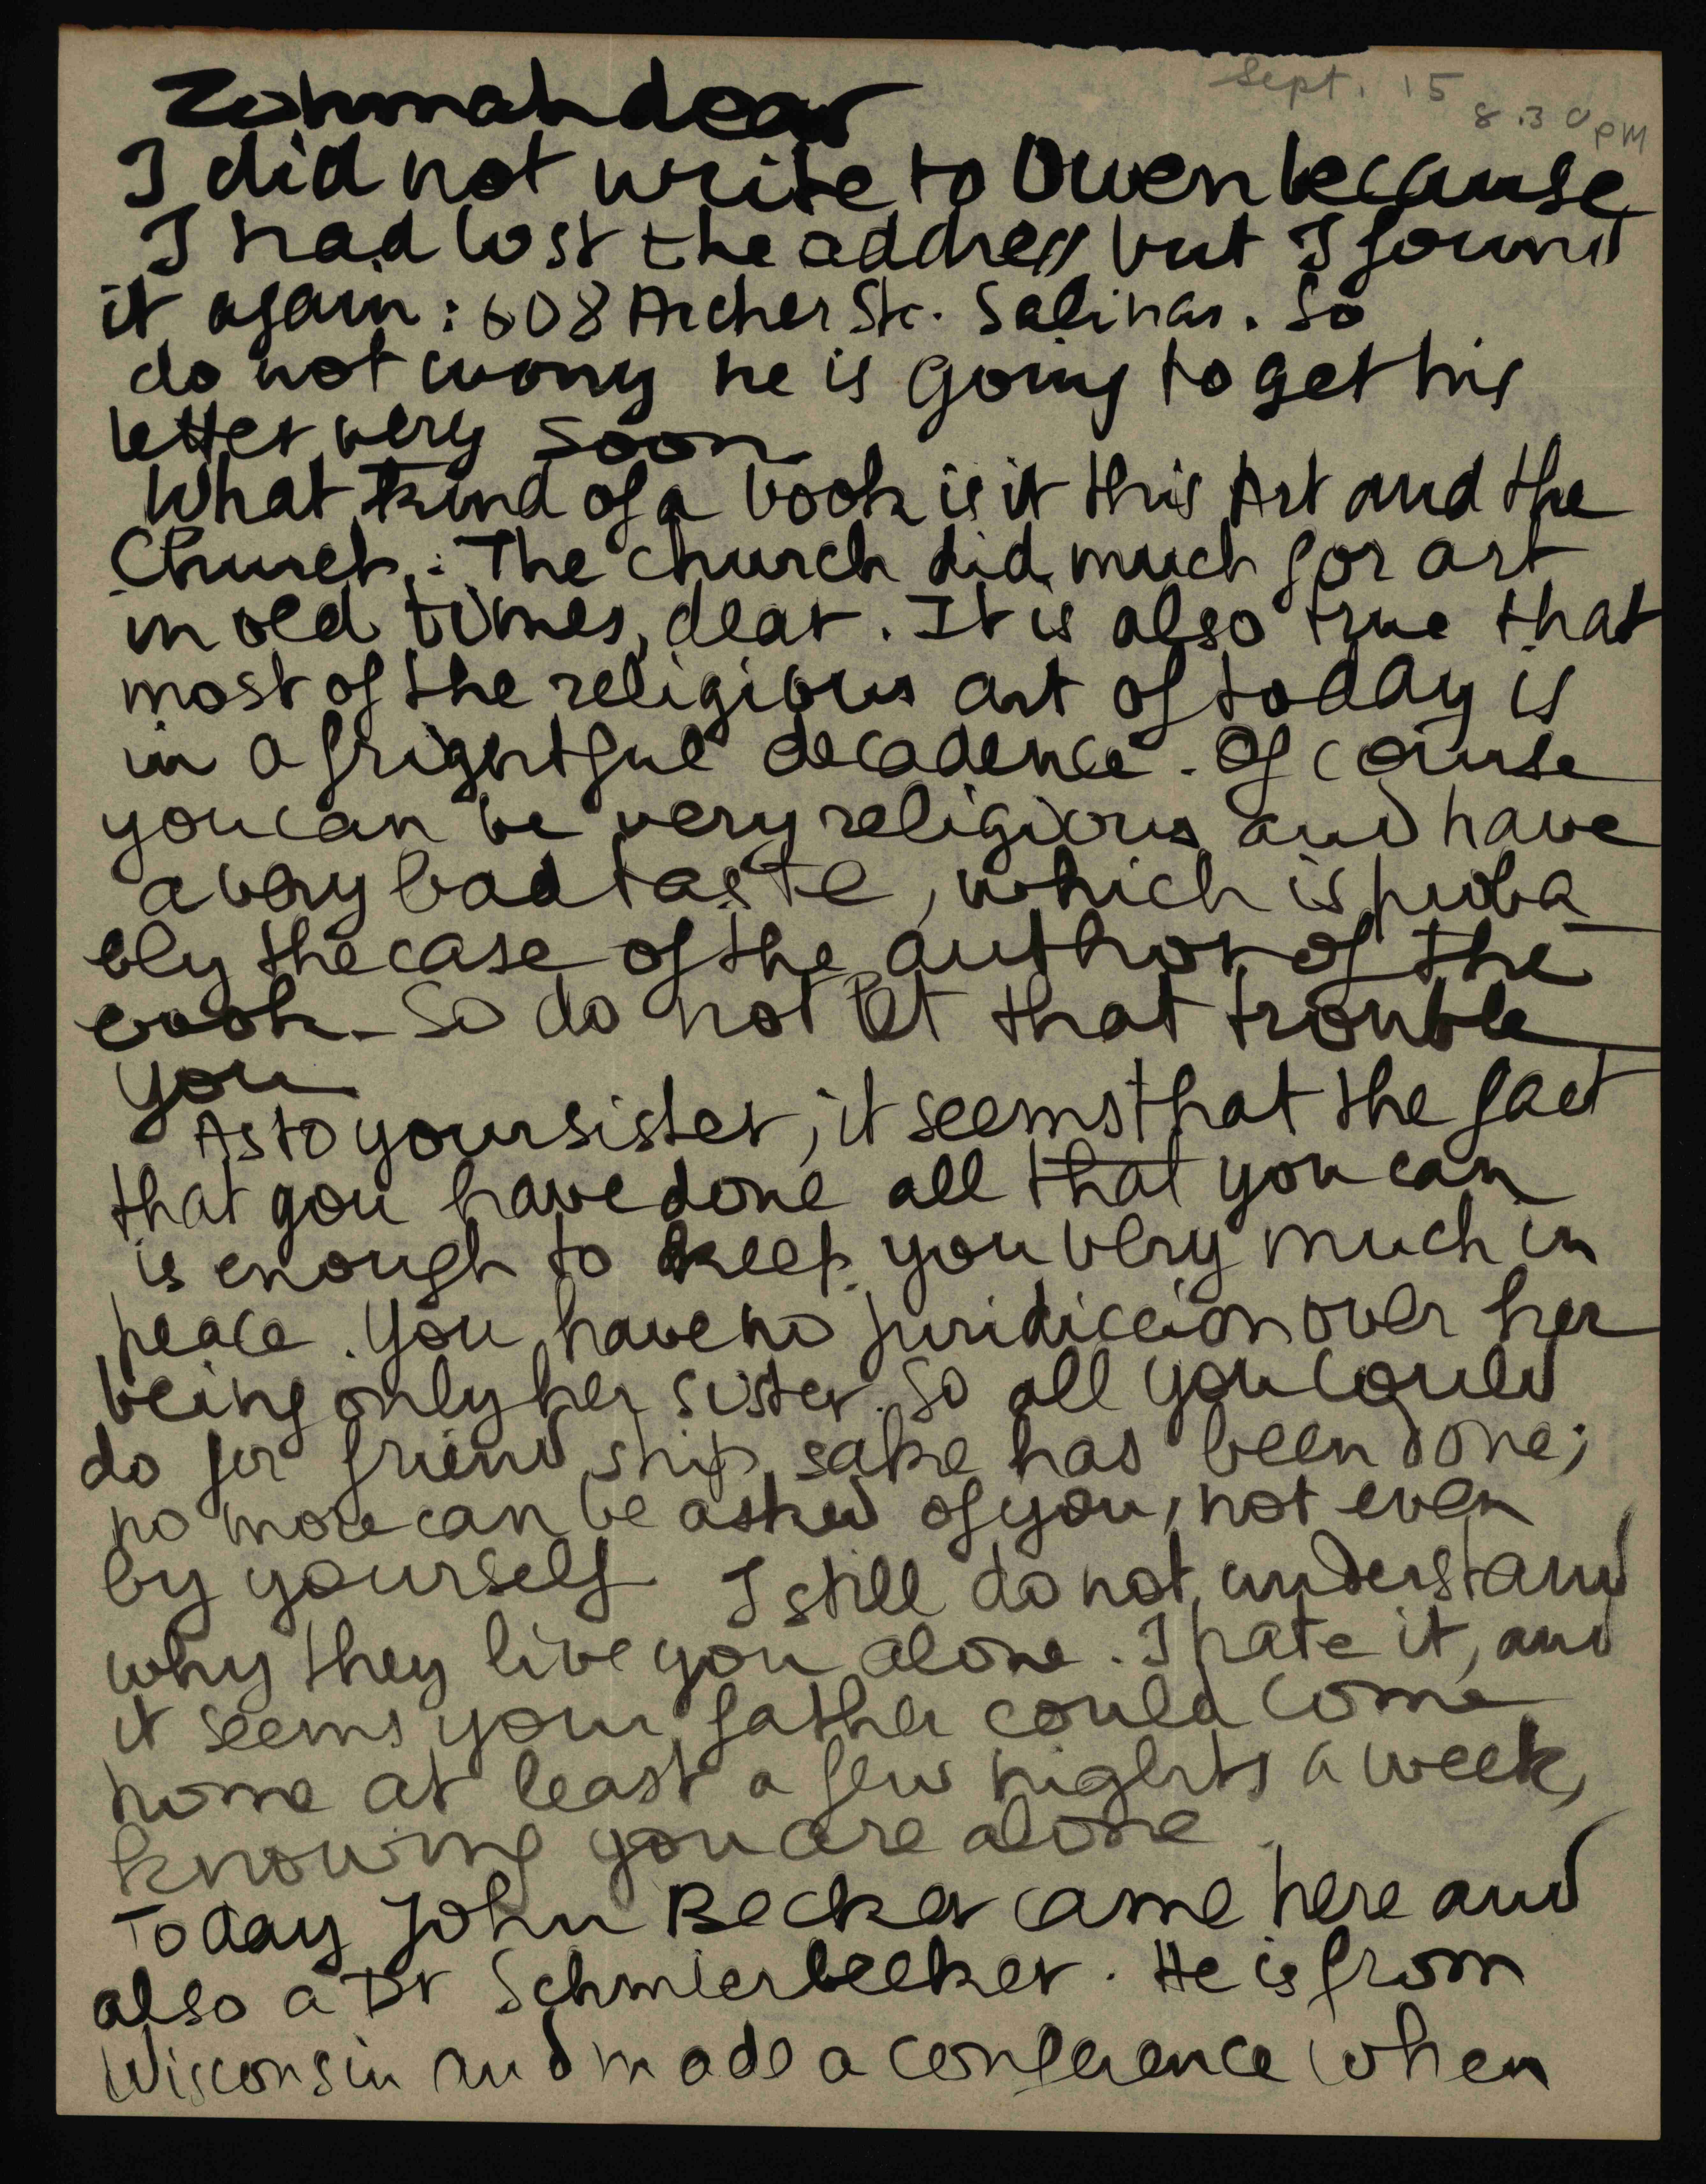 Sept. 15
8.30 PM
Zohmah dear
I did not write to Owen because
I had lost the address but I found
it again : 608 Archer Str. Salinas. So
do not worry he is going to get his
letter very soon
What kind of a book is it this Art and the
Church. : The church did much for art
in old times, dear. It is also true that
most of the religious art of today is
in a frightful decadence. Of course
you can be very religious and have
a very bad taste, which is proba
bly the case of the author of the
book. So do not let that trouble
you
As to your sister, it seems that the fact
that you have done all that you can
is enough to keep you very much in
peace. You have no juridiccion over her
being only her sister. So all you could
do for friend ship sake has been done;
no more can be asked of you, not even
by yourself I still do not understand
why they live you alone. I hate it, and
it seems your father could come
home at least a few nights a week,
knowing you are alone.
Today John Becker came here and
also a Dr Schmierbeeker. He is from
Wisconsin and made a conference when